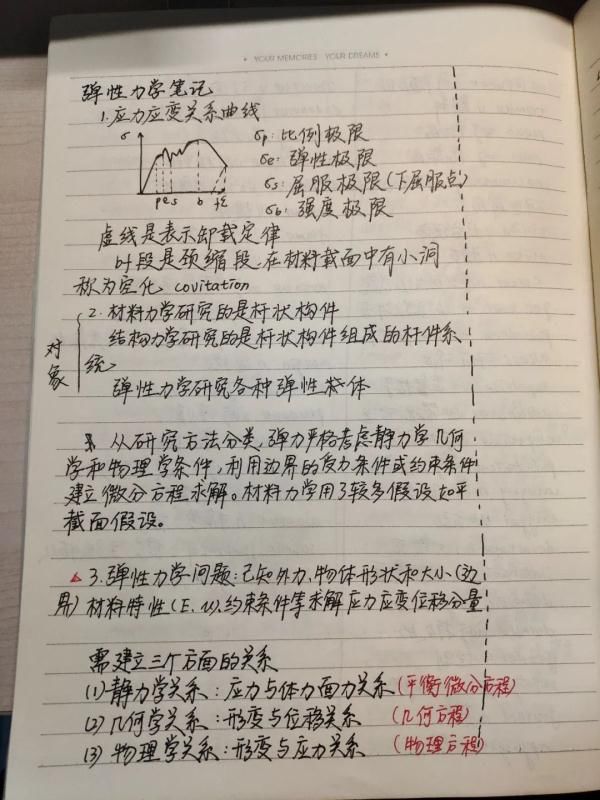 YOUR MEMORIES YOUR DREAMS
弹性力学笔记
1.应力应变关系曲线
σ
σp:比例极限
σe:弹性极限
σs:屈服极限(下屈服点)
σb:强度极限
p e s b f ε
虚线是表示卸载定律
bf段是颈缩段,在材料截面中有小洞
称为空化 covitation
对象
2.材料力学研究的是杆状构件
结构力学研究的是杆状构件组成的杆件系
统
弹性力学研究各种弹性体
从研究方法分类,弹力严格考虑静力学几何
学和物理学条件,利用边界的受力条件或约束条件
建立微分方程求解。材料力学用了较多假设如平
截面假设。
3.弹性力学问题:已知外力、物体形状和大小(边
界)材料特性(E、μ)、约束条件等求解应力应变位移分量
需建立三个方面的关系
(1)静力学关系:应力与体力面力关系(平衡微分方程)
(2)几何学关系:形变与位移关系 (几何方程)
(3)物理学关系:形变与应力关系 (物理方程)